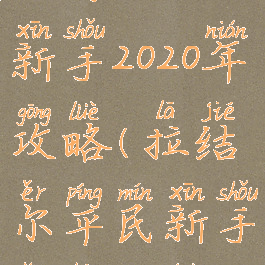 xīn shǒu nián
新手2020年
gōng lüè lā jiē
攻略(拉结
ěr píng mín xīn shǒu
尔平民新手